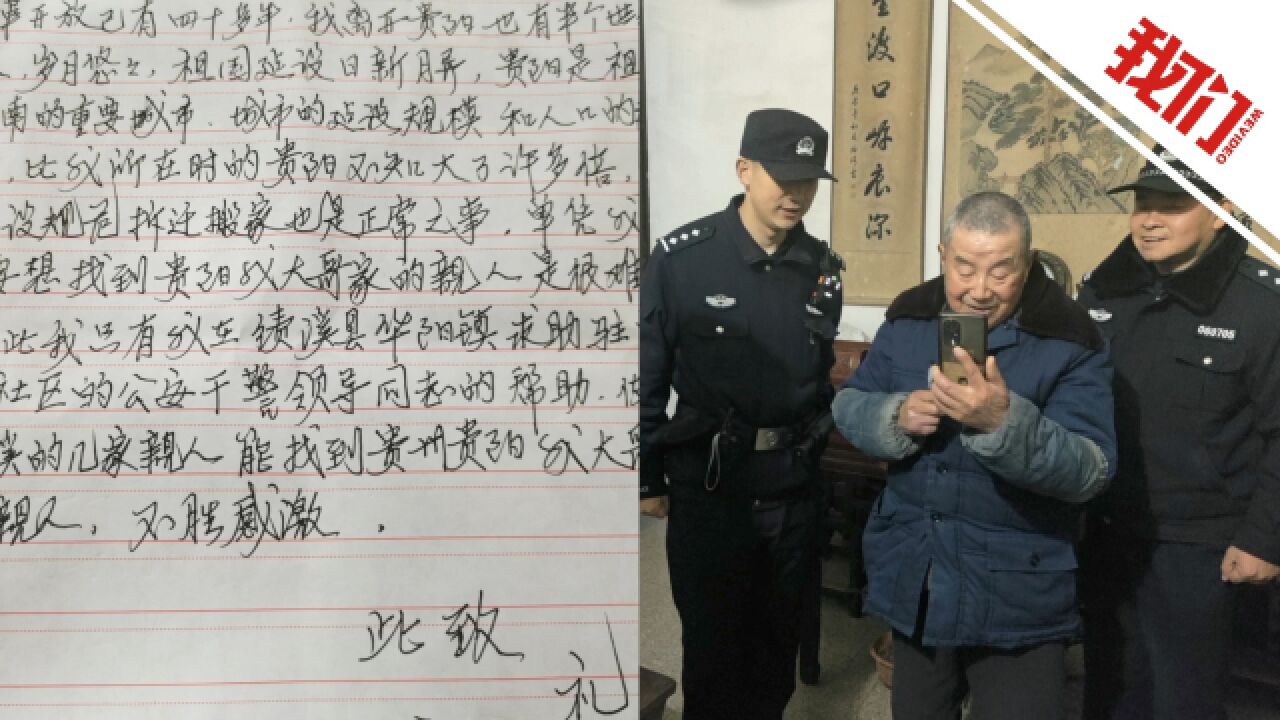 革开放已有四十多年，我离开贵阳也有半个世
，岁月悠々，祖国建设日新月异，贵阳是祖
南的重要城市，城市的建设规模和人口的
，比我所在时的贵阳不知大了许多倍，
设规范拆迁搬家也是正常之事，单凭我
要想找到贵阳我大哥家的亲人是很难
此我只有我在绩溪县华阳镇求助驻
社区的公安干警领导同志的帮助，使
的几家親人能找到贵州贵阳我大哥
親人，不胜感激．
此致
礼
渡口
我们
WEVIDEO
068705